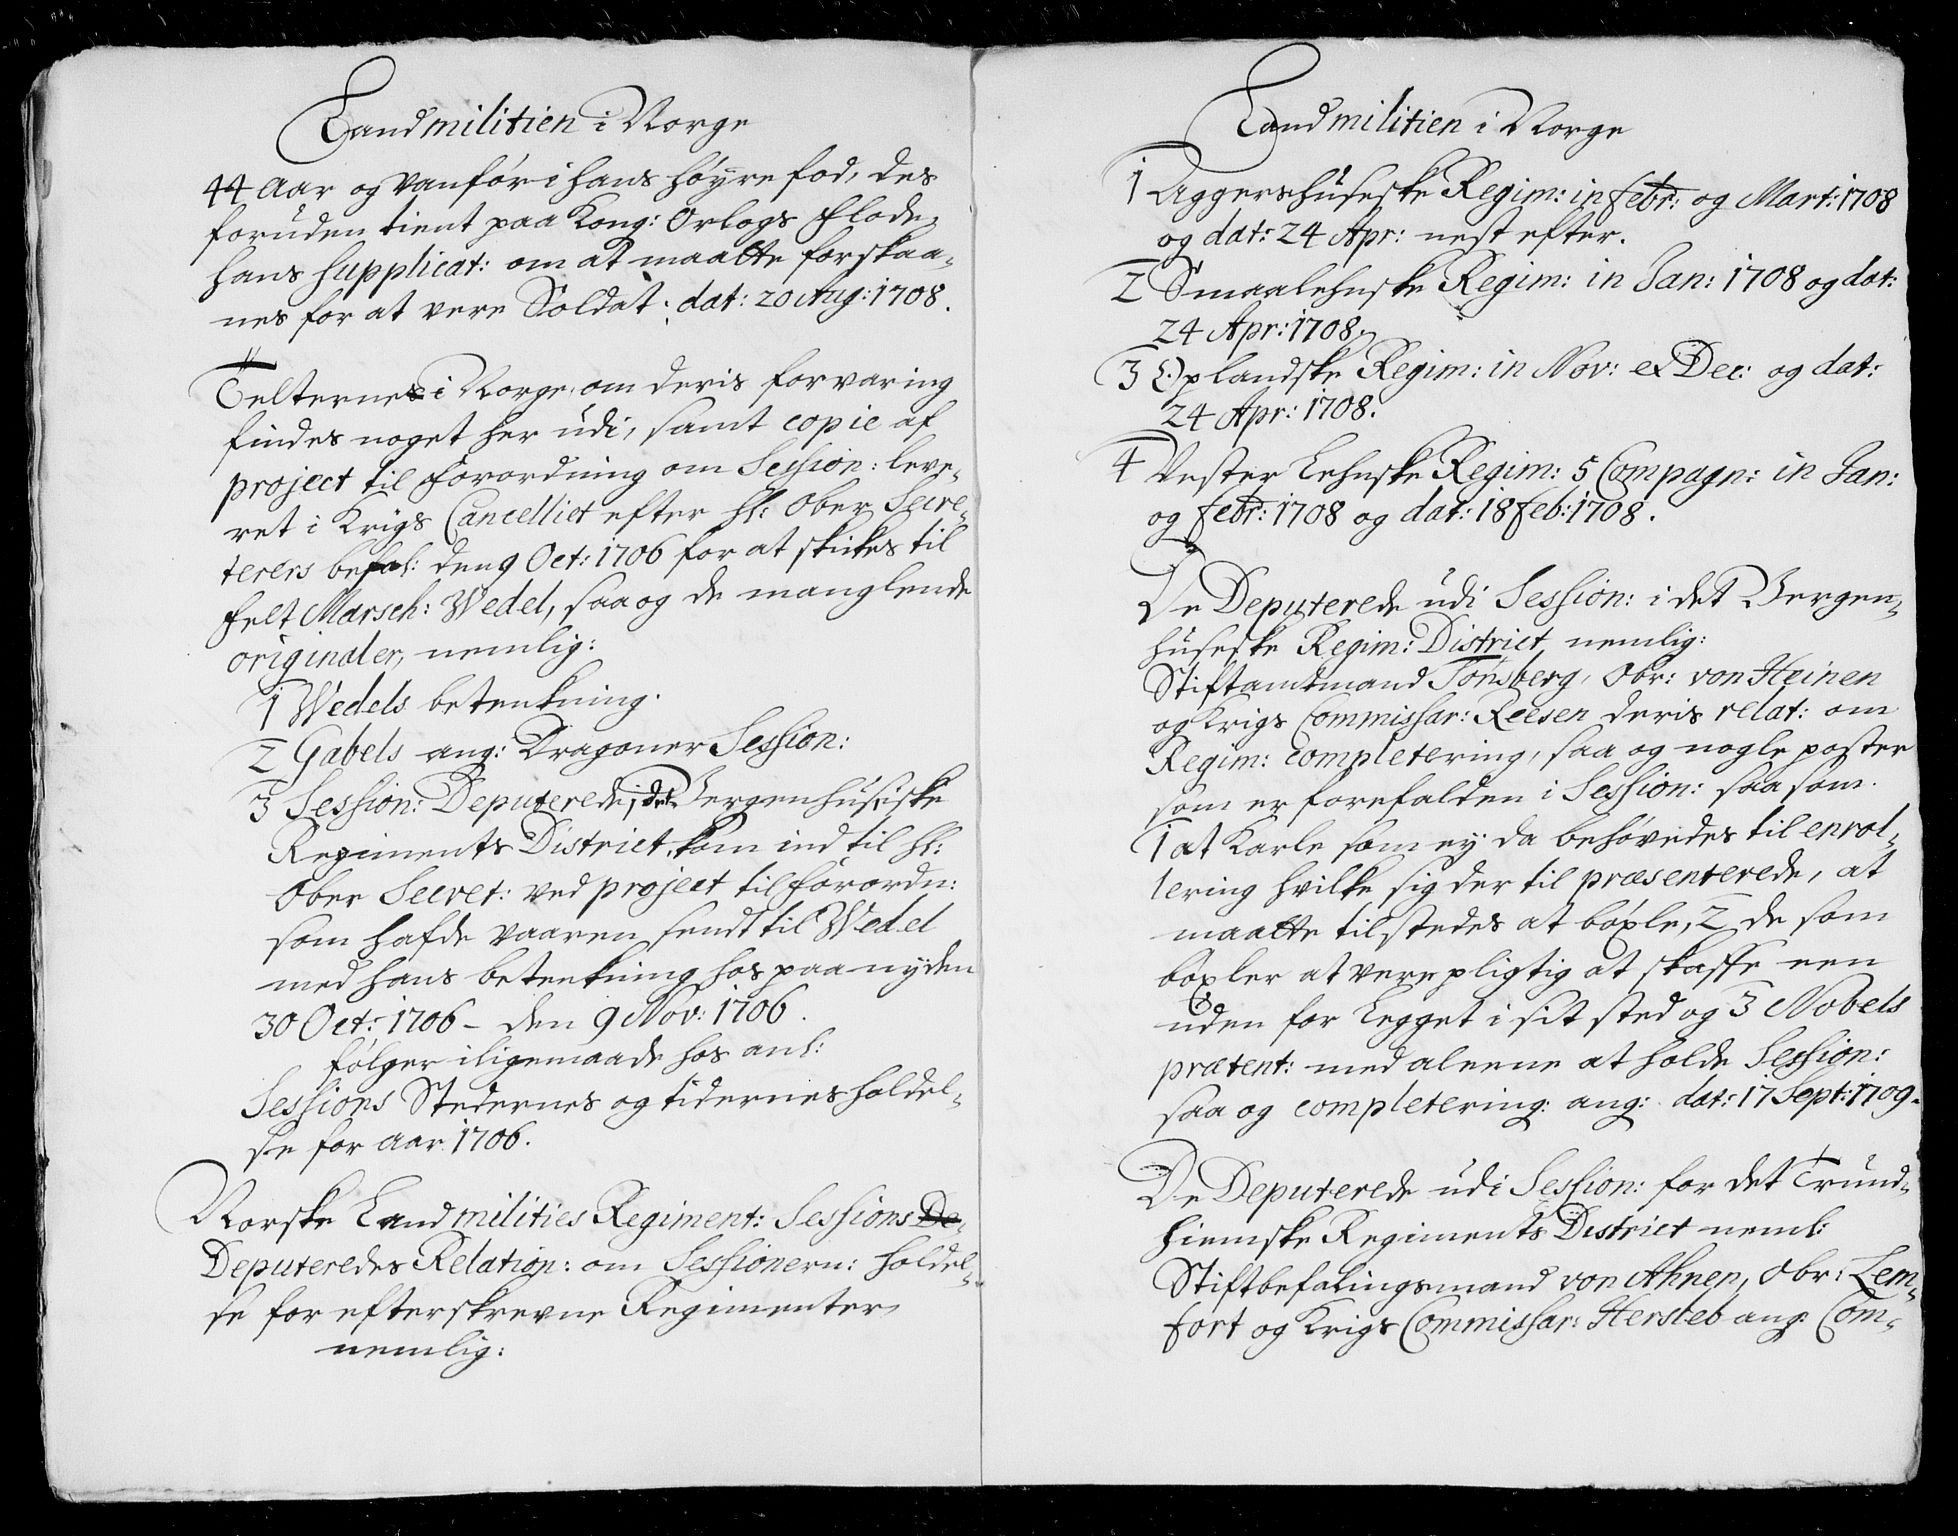 Landmilitien i Norge
44 Aar og vanför i hans höÿre fod, des
foruden tient paa Kong: Orlogs Flode,
hans supplicat: om at maatte forskaa-
nes for at vere Soldat: dat: 20 Aug: 1708.
Telternes i Norge om deris forvaring
findes noget her udi, samt copie af
project til Forordning om Session: leve-
ret i Krigs Cancelliet efter Hl: Ober Secre-
terers befal: den 9 Oct: 1706 for at skikes til
Felt Marsch: Wedel, saa og de manglende
originaler, nemlig:
1 Wedels betenkning.
2 Gabels ang: Dragoner Session:
3 Session: Deputerede i det Bergenhusiske
Regiments District, kom ind til Hl:
Ober Secret: ved project til Forordn:
som hafde vaaren sendt til Wedel
med hans betenkning hos paa nÿ den
30 Oct: 1706 - den 9 Nov: 1706.
følger iligemaade hos anl:
Sessions Stedernes og tidernes holdel-
se for Aar 1706.
Norske Landmilities Regiment: Sessions De-
Deputeredes Relation: om Sessionern: holdel-
se for efterskrevne Regimenter
nemlig:
Landmilitien i Norge
1 Aggershuseske Regim: in Febr: og Mart: 1708
og dat: 24 Apr: nest efter.
2 Smaalehnske Regim: in Jan: 1708 og dat:
24 Apr: 1708.
3 Oplandske Regim: in Nov: et Dec: og dat:
24 Apr: 1708.
4 Vester Lehnske Regim: 5 Compagn: in Jan:
og Febr: 1708 og dat: 18 Feb: 1708.
De Deputerede udi Session: i det Bergen-
huseske Regim: District nemlig:
Stiftamtmand Tönsberg, Obr: von Heinen
og Krigs Commissar: Reesen deris relat: om
Regim: completering, saa og nogle poster
som er forefalden i Session: saa som.
1 at Karle som ey da behövedes til enrol-
lering hvilke sig der til præsenterede, at
maatte tilstedes at böxle, 2 de som
böxler at vere pligtig at skaffe een
uden for Legget i sit sted og 3 Nobels
prætent: med aleene at holde Session:
saa og completering: ang: dat: 17 Sept: 1709.
De Deputerede udi Session: for det Trund-
hiemske Regiments District neml:
Stiftbefalingsmand von Ahnen, Obr: Lem-
fort og Krigs Commissar: Hersleb ang: Com-